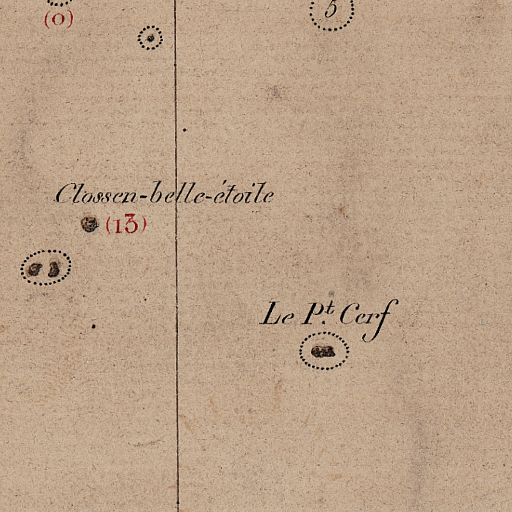 (0)
5
Clossen-belle-étoile
(13)
Le Pt. Cerf